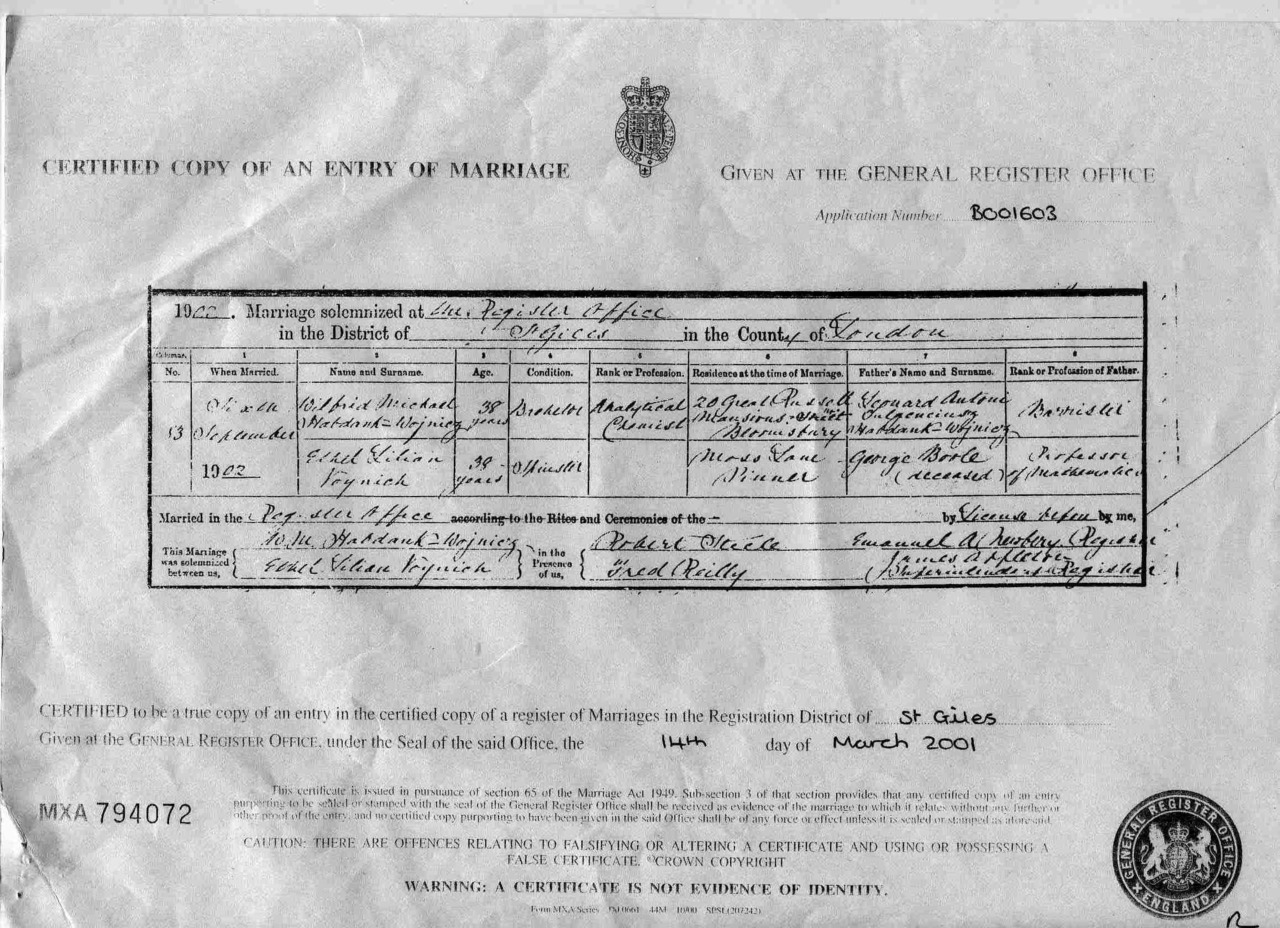 CERTIFIED COPY OF AN ENTRY OF MARRIAGE
GIVEN AT THE GENERAL REGISTER OFFICE
Application Number B001603
1902. Marriage solemnized at the Register Office
in the District of St Giles in the County of London
Columns. 1 2 3 4 5 6 7 8
No. When Married. Name and Surname. Age. Condition. Rank or Profession. Residence at the time of Marriage. Father's Name and Surname. Rank or Profession of Father.
53 Sixth September 1902
Wilfrid Michael Habdank-Wojnicz 38 years Bachelor Analytical Chemist 20 Great Russell Mansions Bloomsbury Leonard Antoni Habdank-Wojnicz Barrister
Ethel Lilian Voynich 38 years Spinster Moss Lane Pinner George Boole (deceased) Professor of Mathematics
Married in the Register Office according to the Rites and Ceremonies of the by License before by me,
This Marriage was solemnized between us, W. M. Habdank-Wojnicz in the Presence of us, Robert Steele Emanuel A. Newbury Registrar
Ethel Lilian Voynich Fred Reilly James Appleton Superintendent Registrar
CERTIFIED to be a true copy of an entry in the certified copy of a register of Marriages in the Registration District of St Giles
Given at the GENERAL REGISTER OFFICE, under the Seal of the said Office, the 14th day of March 2001
MXA 794072
This certificate is issued in pursuance of section 65 of the Marriage Act 1949. Sub-section 3 of that section provides that any certified copy of an entry
purporting to be sealed or stamped with the seal of the General Register Office shall be received as evidence of the marriage to which it relates without any further or
other proof of the entry, and no certified copy purporting to have been given in the said Office shall be of any force or effect unless it is sealed or stamped as aforesaid.
CAUTION: THERE ARE OFFENCES RELATING TO FALSIFYING OR ALTERING A CERTIFICATE AND USING OR POSSESSING A
FALSE CERTIFICATE. ©CROWN COPYRIGHT
WARNING: A CERTIFICATE IS NOT EVIDENCE OF IDENTITY.
Form MXA Series 44M 10/00 SPSL(207242)
GENERAL REGISTER OFFICE
ENGLAND